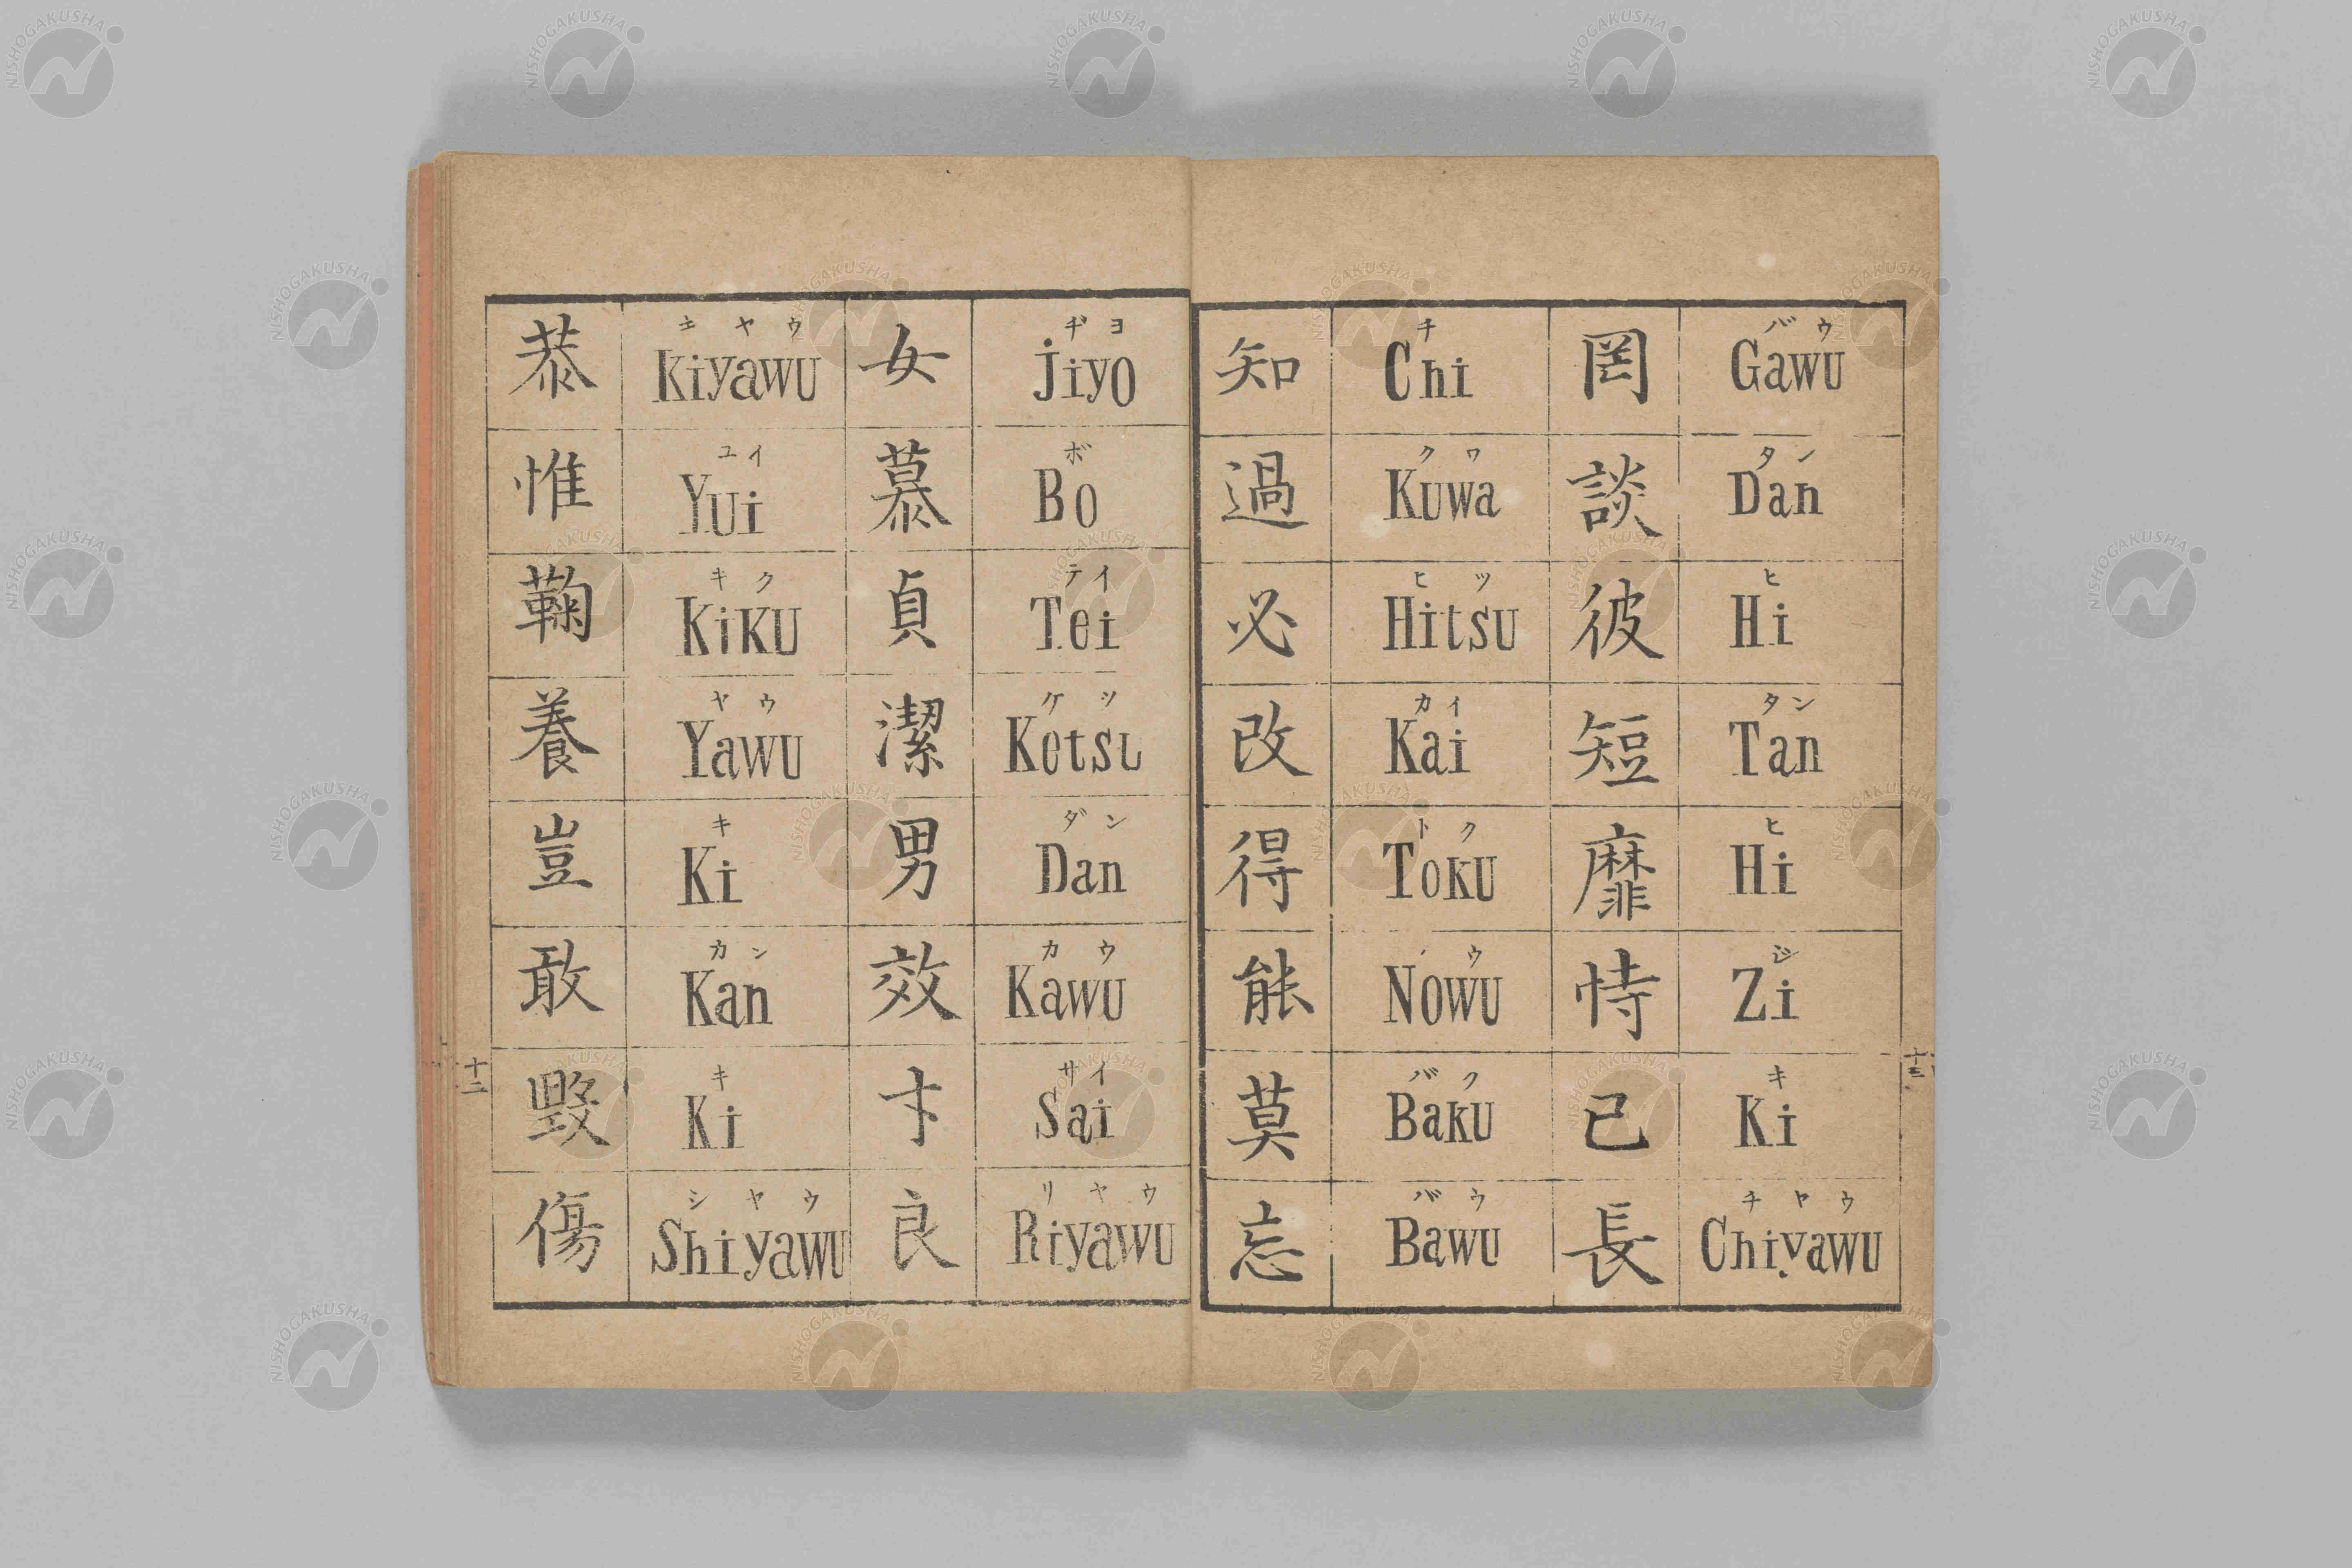 恭 キヤウ Kiyawu
惟 ユイ Yui
鞠 キク Kiku
養 ヤウ Yawu
豈 キ Ki
敢 カン Kan
毀 キ Ki
傷 シヤウ Shiyawu
十二
女 ヂヨ jiyo
慕 ボ Bo
貞 テイ Tei
潔 ケツ Ketsu
男 ダン Dan
效 カウ Kawu
才 サイ Sai
良 リヤウ Riyawu
知 チ Chi
過 クワ Kuwa
必 ヒツ Hitsu
改 カイ Kai
得 トク Toku
能 ノウ Nowu
莫 バク Baku
忘 バウ Bawu
罔 バウ Gawu
談 タン Dan
彼 ヒ Hi
短 タン Tan
靡 ヒ Hi
恃 ジ Zi
己 キ Ki
長 チヤウ Chiyawu
十三
NISHOGAKUSHA